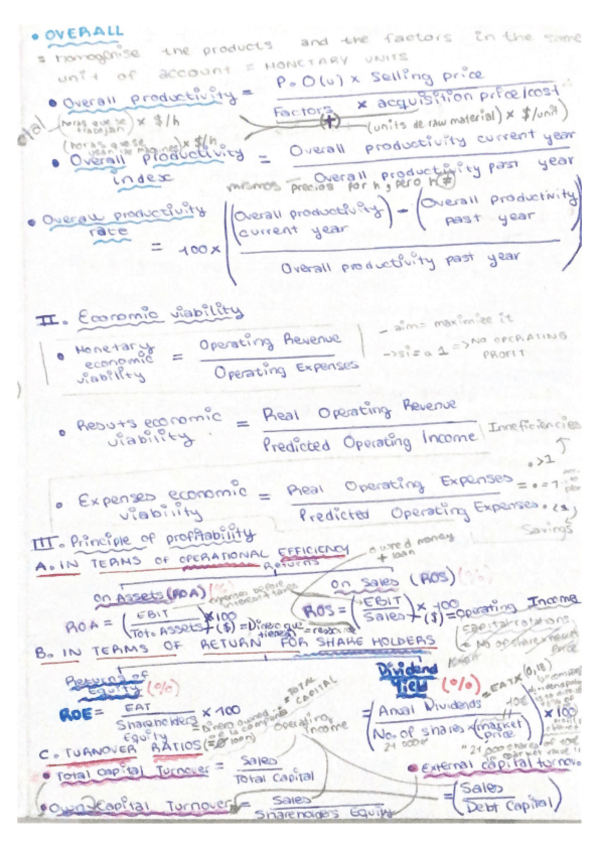 • OVERALL
= homogenise the products and the factors in the same
unit of account = MONETARY UNITS
• Overall productivity = P. O(u) x Selling price
Factors x acquisition price/cost
(horas que se trabajan) x $/h (+) (units de raw material) x $/unit)
(horas que se usan las maquines) x $/h
• Overall productivity index = Overall productivity current year
Overall productivity past year
mismos precios por h, pero h ≠
• Overall productivity rate = 100 x ((Overall productivity current year) - (Overall productivity past year)
Overall productivity past year)
II. Economic viability
• Monetary economic viability = Operating Revenue
Operating Expenses
- aim = maximize it
-> si = a 1 => NO OPERATING PROFIT
• Resuts economic viability = Real Operating Revenue
Predicted Operating Income
Inneficiencies
• Expenses economic viability = Real Operating Expenses
Predicted Operating Expenses
• >1
• = 1
• <1
Savings
III. Principle of profitability
A. IN TERMS OF OPERATIONAL EFFICIENCY
Returns
owned money + loan
on Assets (ROA) (%)
expenses before interest & taxes
on Sales (ROS) (%)
ROA = (EBIT
Tot. Assets) x 100
-> ($) = Dinero que tienes
ROS = (EBIT
Sales) x 100
-> ($) = Operating Income
B. IN TERMS OF RETURN FOR SHARE HOLDERS
Returns of Equity (%)
Dividend Yield (%)
= TOTAL CAPITAL
= EAT x (0,18)
ROE = EAT
Shareholders Equity x 100
= Dinero owned de la compañía (≠ loan)
Operating Income
= (Anual Dividends
No. of shares x (market price)) x 100
C. TURNOVER RATIOS
• Total Capital Turnover = Sales
Total Capital
• External capital turno
= (Sales
Debt Capital)
• Own Capital Turnover = Sales
Shareholders Equity